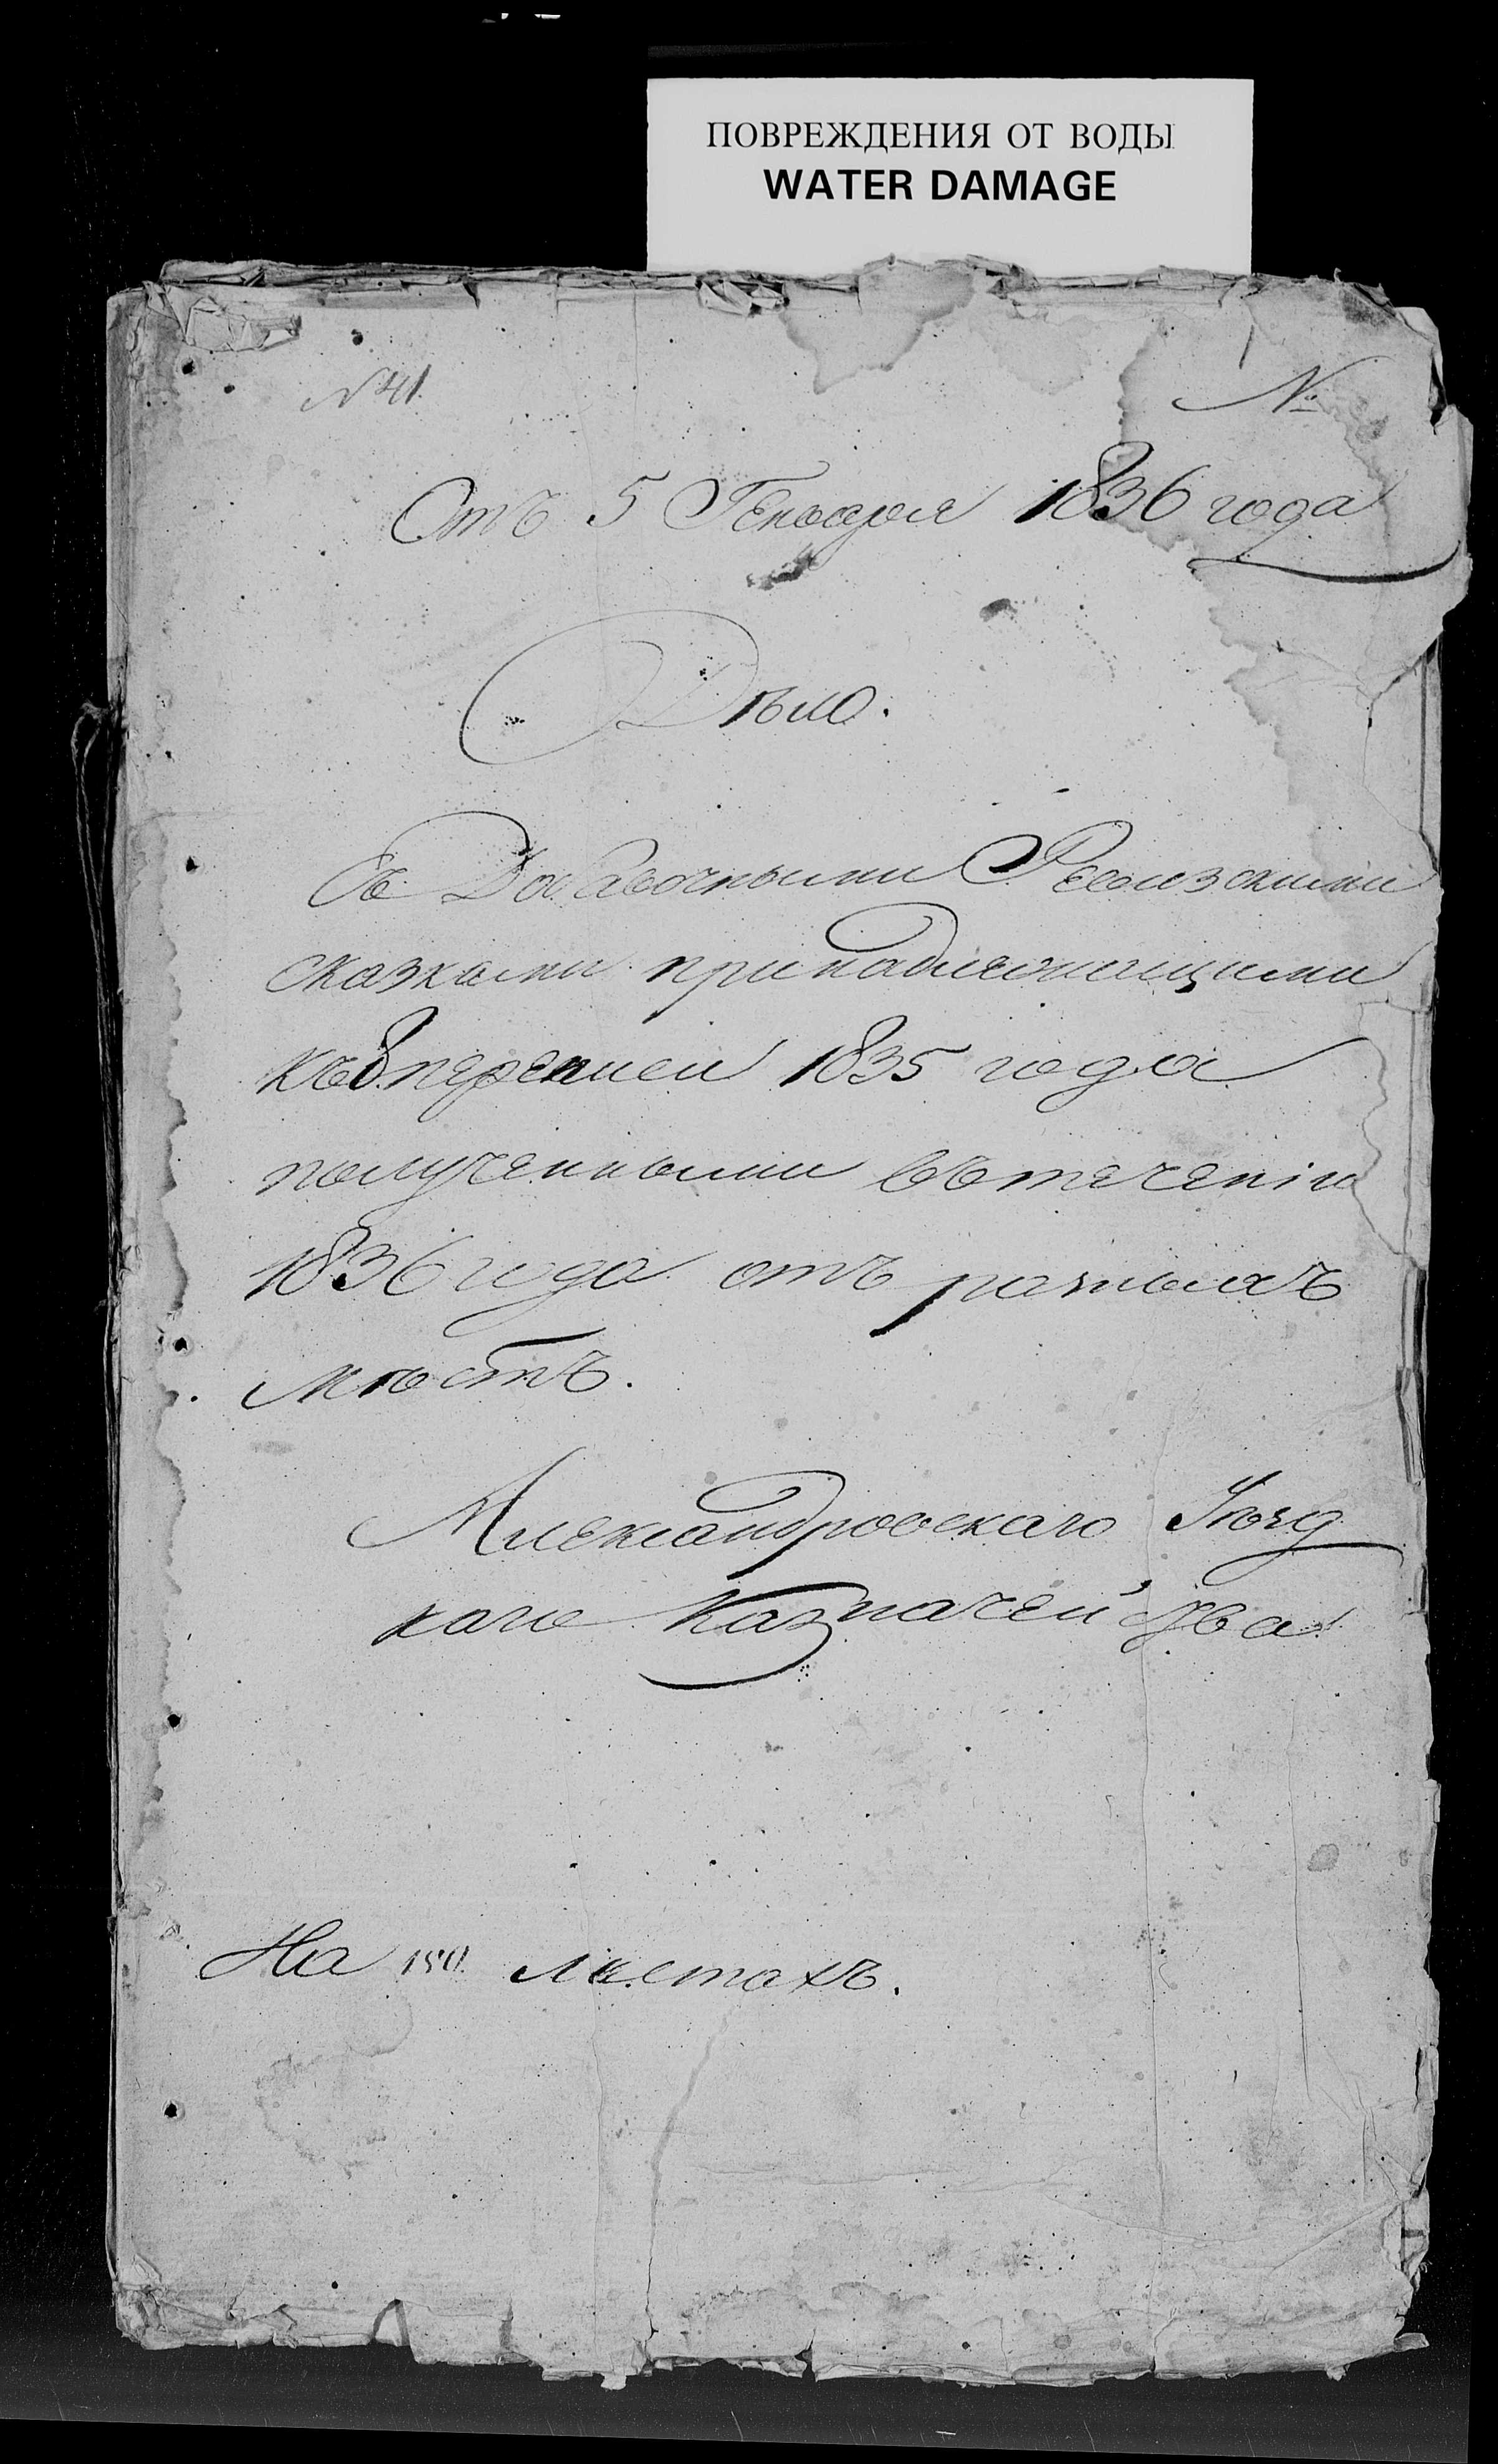 ПОВРЕЖДЕНИЯ ОТ ВОДЫ
WATER DAMAGE
№ 41.
№
Отъ 5 Генваря 1836 года
Дѣло.
Съ Добавочными Ревизскими
сказками принадлежащими
къ 8 переписи 1835 года
полученными въ теченіи
1836 года отъ разныхъ
мѣстъ.
Александровскаго Уѣзд
наго Казначейства
На 150. листахъ.